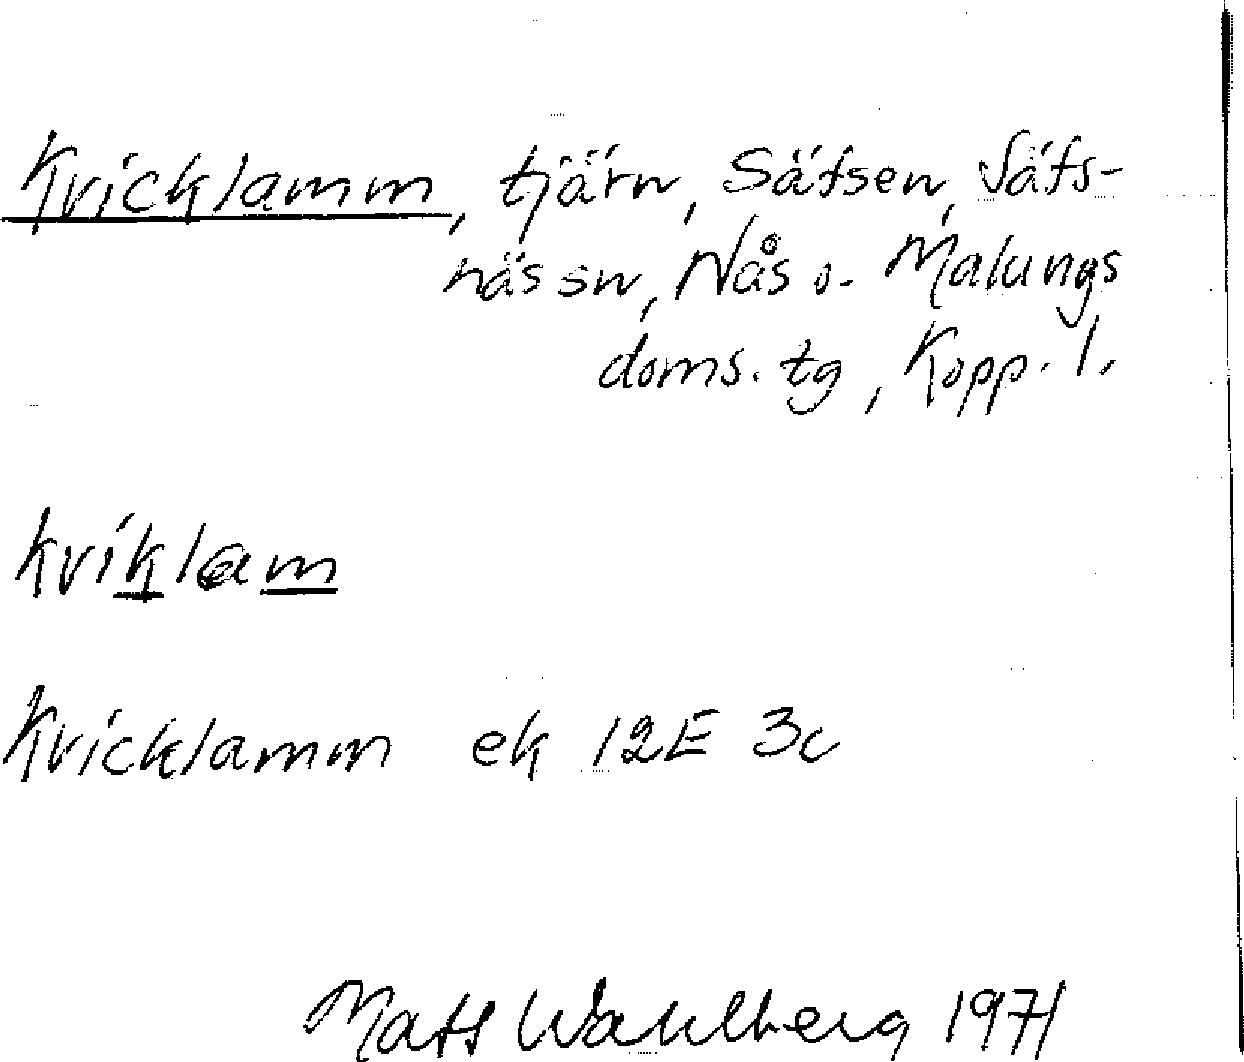 Kvicklamm, tjärn, Säfsen, Säfs-
näs sn, Nås o. Malungs
doms. tg, Kopp. l.
kviklam
Kvicklamm ek 12E 3c
Mats Wahlberg 1971